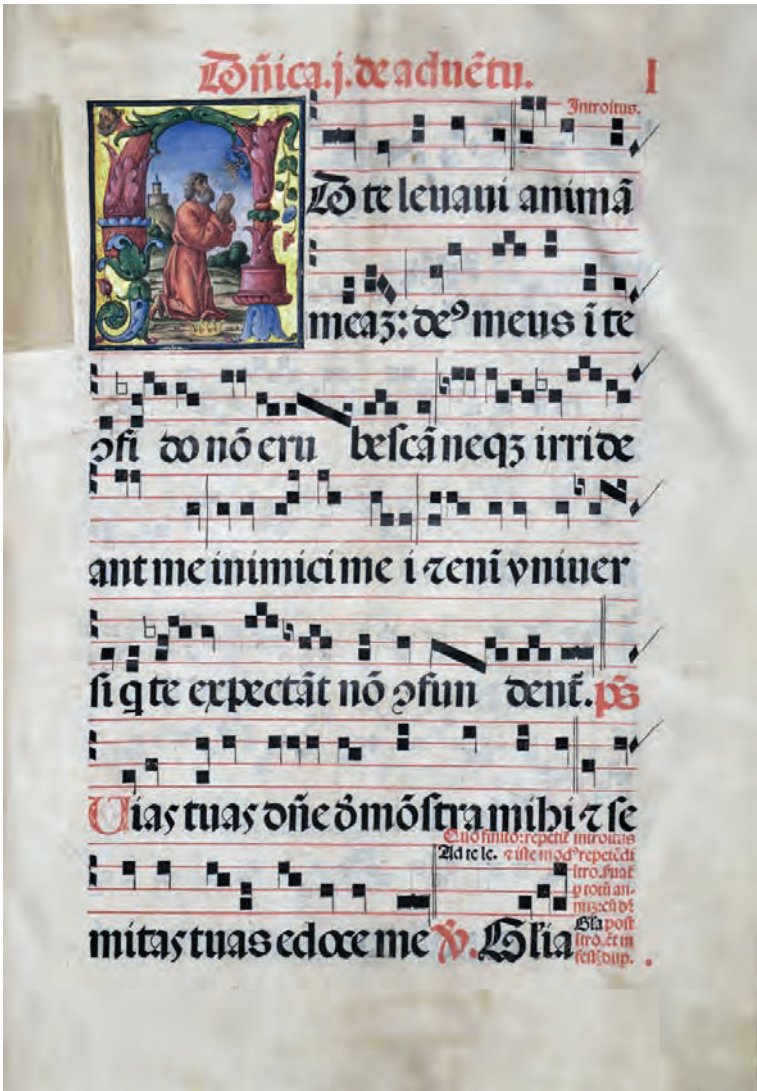 Dñica.j. de aduẽtu. I
Introitus.
AD te leuaui animã
meaꝫ: deꝰ meus ĩ te
ꝯfi do nõ eru bescã neqꝫ irride
ant me inimici me i ⁊ enĩ vniuer
si q te expectãt nõ ꝯfun dent̃. p̃s
Uias tuas dñe dẽmõstra mihi ⁊ se
Quo finito: repetit̃ introitus
Ad te le. ⁊ iste modꝰ repetẽdi
ĩtro. ſuat̃
p totũ an-
nuꝫ: cũ dr̃
mitas tuas edoce me ℣. Gl̃ia
Gl̃a post
ĩtro. et in
festꝭ dup.